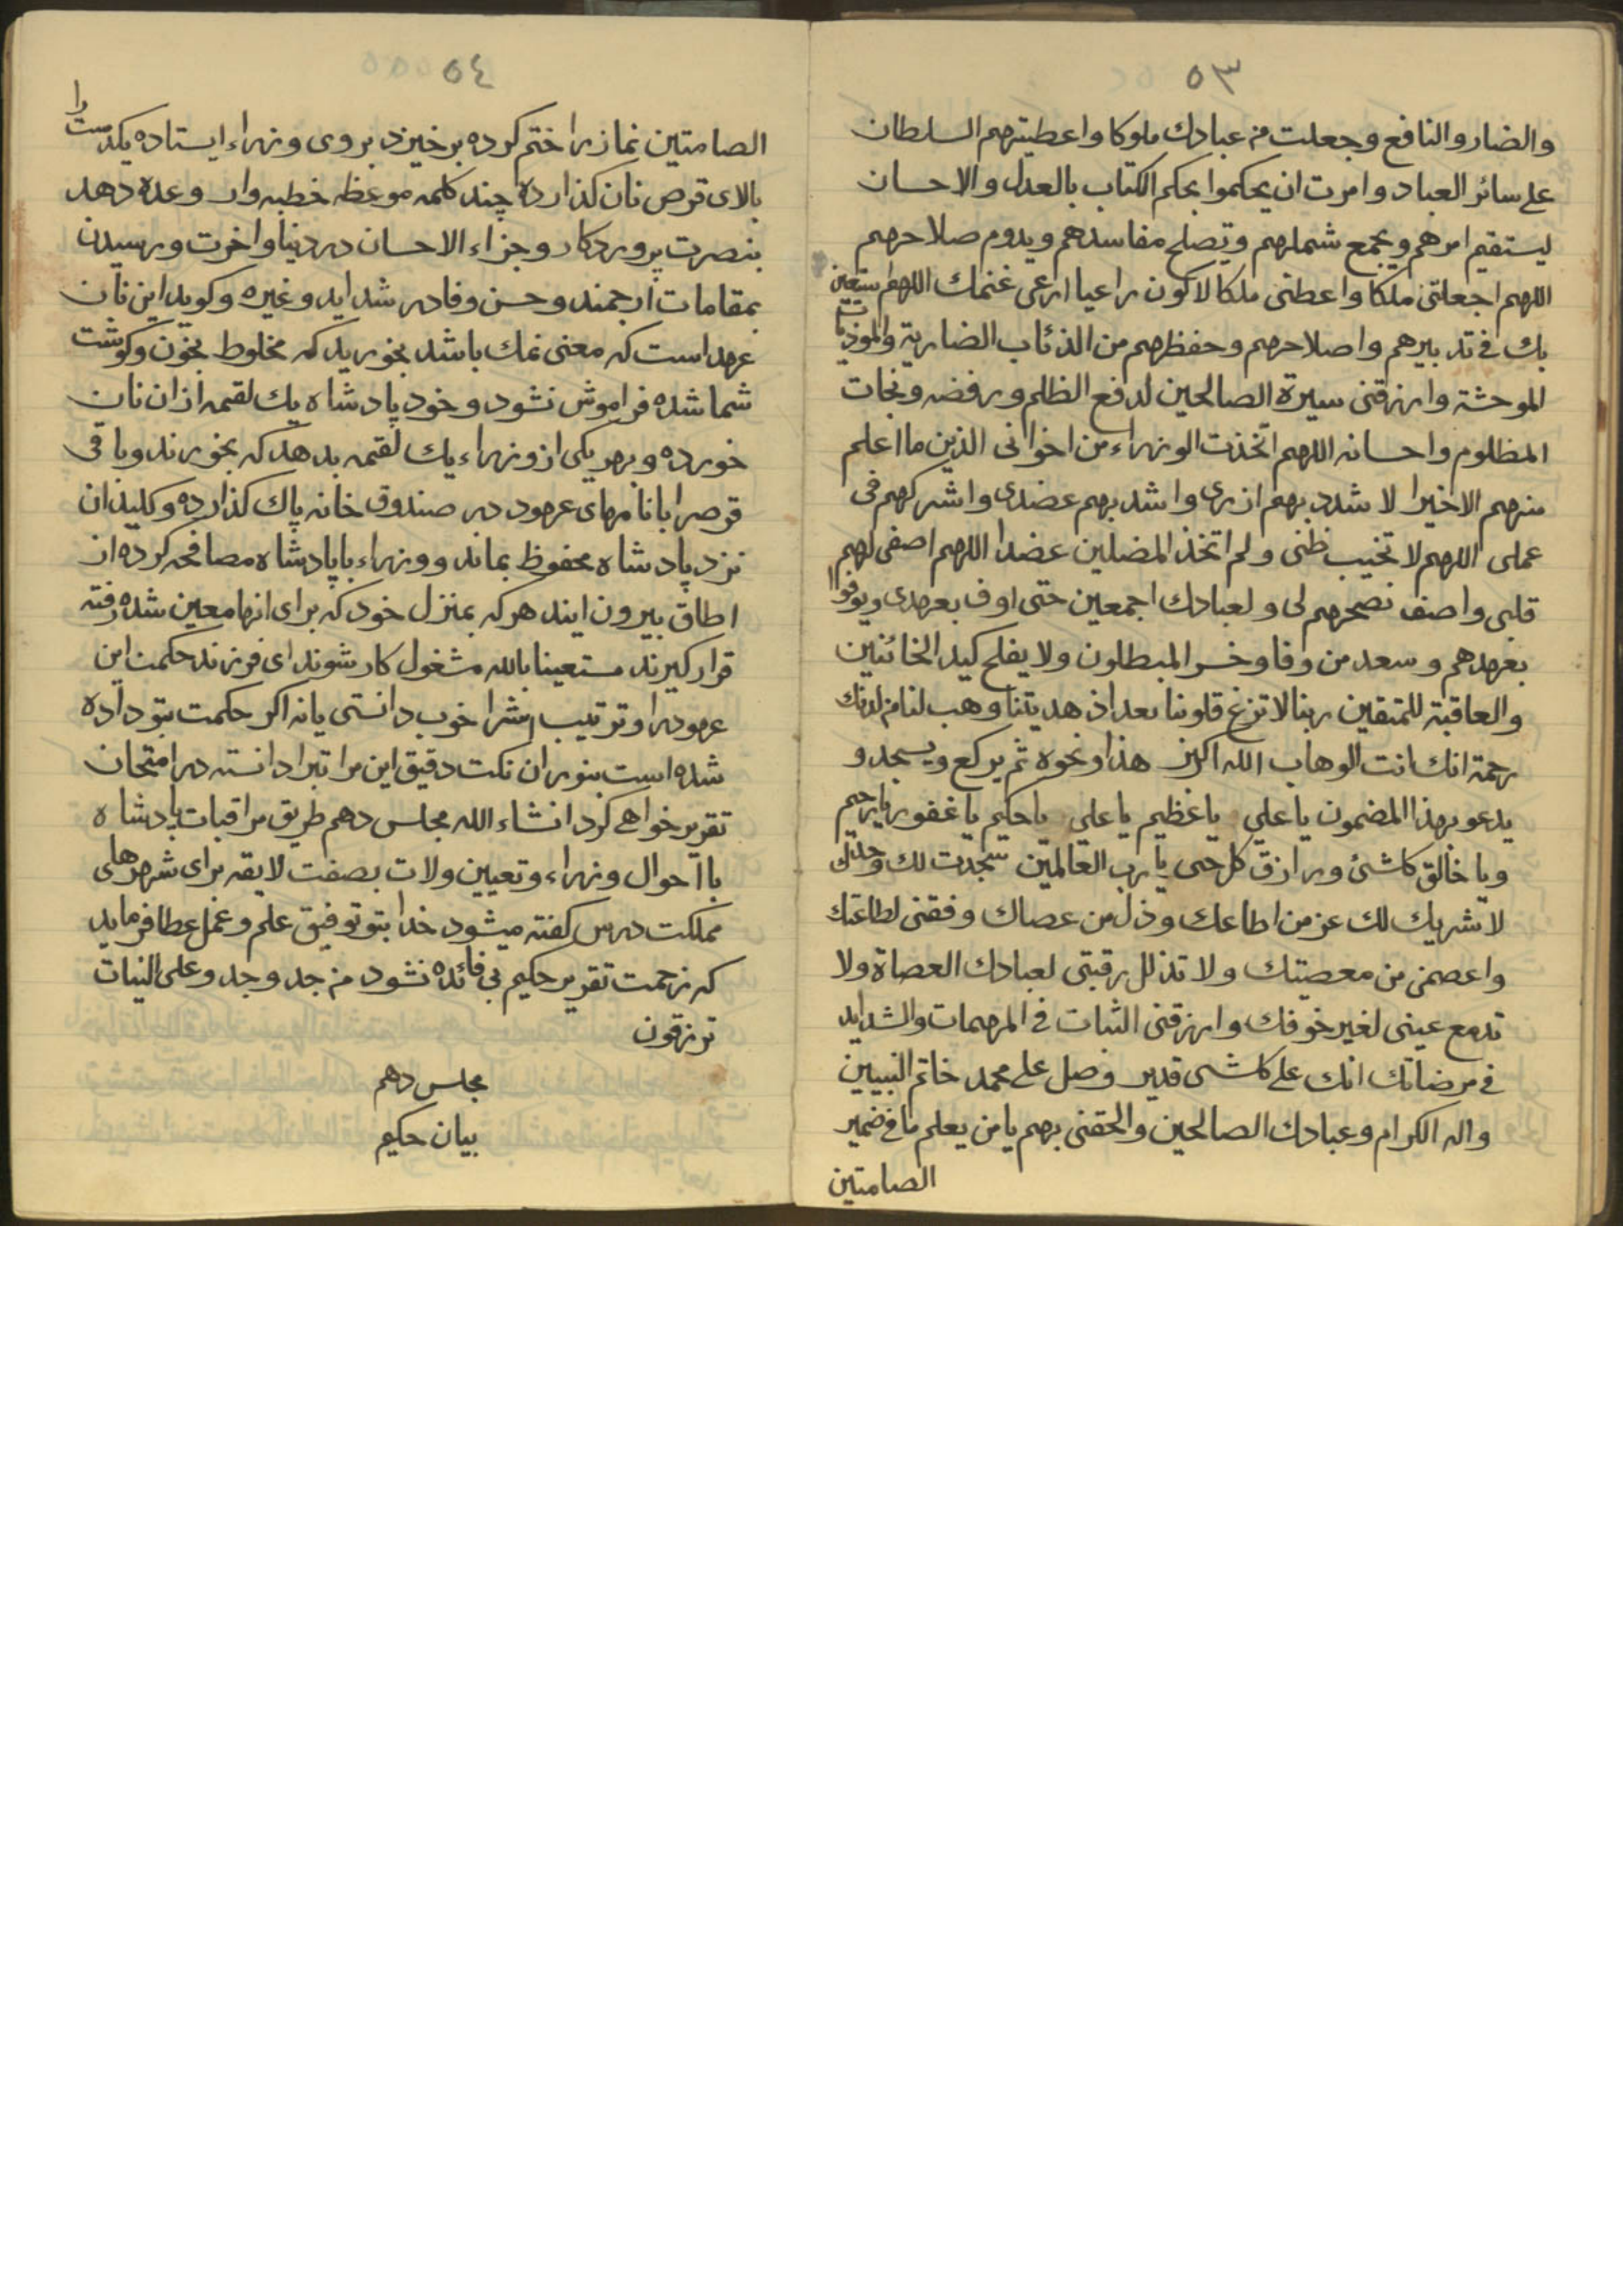 ٥٣
والضار والنافع وجعلت من عبادك ملوكا واعطيتهم السلطان
على سائر العباد وامرت ان يحكموا بحكم الكتاب بالعدل والاحسان
ليستقيم امرهم ويجمع شملهم وتصلح مفاسدهم ويدوم صلاحهم
اللهم اجعلنى ملكا واعطنى ملكا لاكون راعيا ارعى غنمك اللهم استعين
بك فى تدبيرهم واصلاحهم وحفظهم من الذئاب الضارية والموذيات
الموحشة وارزقنى سيرة الصالحين لدفع الظلم ورفضه ونجات
المظلوم واحسانه اللهم اتخذت الوزراء من اخوانى الذين ما اعلم
منهم الاخيرا لاشدد بهم ازرى واشد بهم عضدى واشركهم فى
عملى اللهم لا تخيب ظنى ولم اتخذ المضلين عضدا اللهم اصفى لهم
قلبى واصف نصحهم لى ولعبادك اجمعين حتى اوف بعهدى ويوفوا
بعهدهم وسعد من وفا وخسر المبطلون ولا يفلح كيد الخائنين
والعاقبة للمتقين ربنا لا تزغ قلوبنا بعد اذ هديتنا وهب لنا من لدنك
رحمة انك انت الوهاب الله اكبر هذا ونحوه ثم يركع ويسجد و
يدعو بهذا المضمون يا علي يا عظيم يا علي يا حكيم يا غفور يا رحيم
ويا خالق كلشئ ورازق كل حى يا رب العالمين سجدت لك وحدك
لا شريك لك عز من اطاعك وذل من عصاك وفقنى لطاعتك
واعصمنى من معصيتك ولا تذلل رقبتى لعبادك العصاة ولا
تدمع عينى لغير خوفك وارزقنى الثبات فى المهمات والشدايد
فى مرضاتك انك على كلشى قدير وصل على محمد خاتم النبيين
واله الكرام وعبادك الصالحين والحقنى بهم يا من يعلم ما فى ضمير
الصامتين
٥٤
الصامتين نماز را ختم كرده بر خيزد بروى وزراء ايستاده يكدست را
بالاى قرص نان كذارده چند كلمه موعظه خطبه وار وعده دهد
بنصرت پروردكار وجزاء الاحسان در دنيا واخرت ورسيدن
بمقامات ارجمند وحسن وفا در شدايد وغيره وكويد اين نان
عهد است كه معنى نمك باشد بخوريد كه مخلوط بخون وكوشت
شما شده فراموش نشود وخود پادشاه يك لقمه از ان نان
خورده وبهر يكى از وزراء يك لقمه بدهد كه بخورند وباقى
قرصرا با نامهاى عهود در صندوق خانه پاك كذارده وكليد ان
نزد پادشاه محفوظ بماند ووزراء با پادشاه مصافحه كرده از
اطاق بيرون ايند هر كه بمنزل خود كه براى انها معين شده رفته
قرار كيرند مستعينا بالله مشغول كار شوند اى فرزند حكمت اين
عهود را وترتيب اشرا خوب دانستى يا نه اكر حكمت بتو داده
شده است بنور ان نكت دقيق اين مراتبرا دانسته در امتحان
تقرير خواهى كرد انشاء الله مجلس دهم طريق مراقبات پادشاه
با احوال وزراء وتعيين ولات بصفت لايقه براى شهرهاى
مملكت درس كفته ميشود خدا بتو توفيق علم وعمل عطا فرمايد
كه زحمت تقرير حكيم بى فائده نشود من جد وجد وعلى النيات
ترزقون
مجلس دهم
بيان حكيم